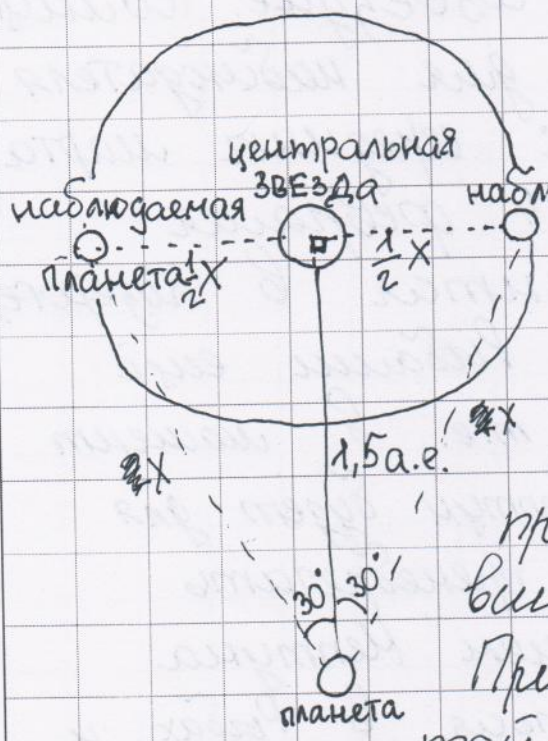 центральная
ЗВЕЗДА
наблюдаемая
планета
1/2 X
1/2 X
X
X
1,5 а.е.
30°
30°
планета